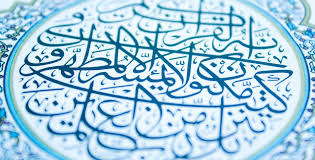 لقرآن
كتب مكنون لا يمسه إلا المطهرون
تنزيل من رب العلمين